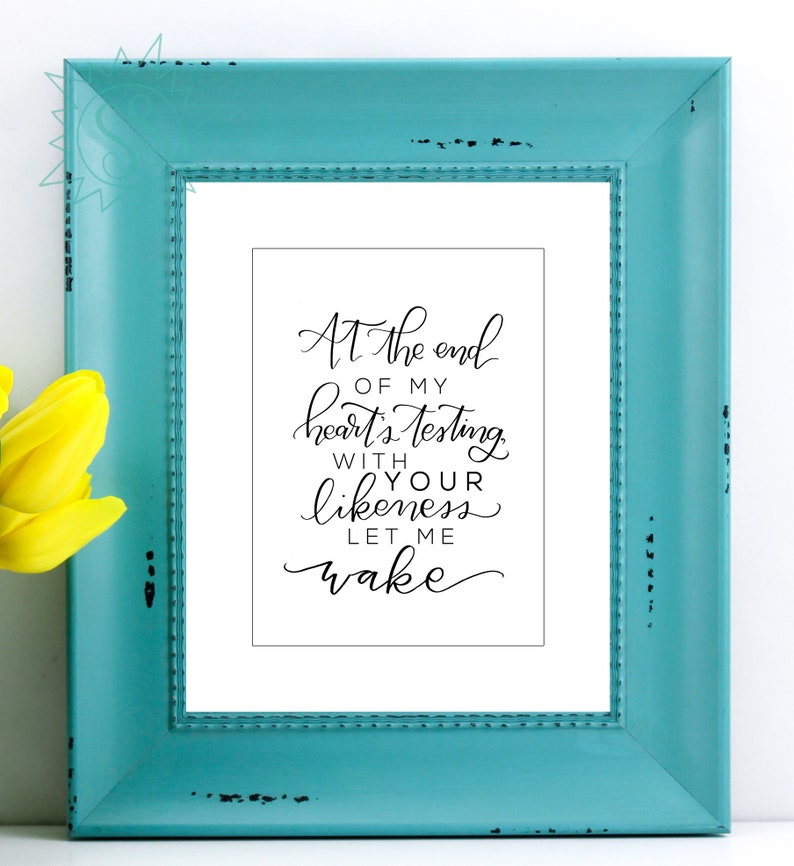 At the end
OF MY
heart's testing,
WITH
YOUR
likeness
LET ME
wake